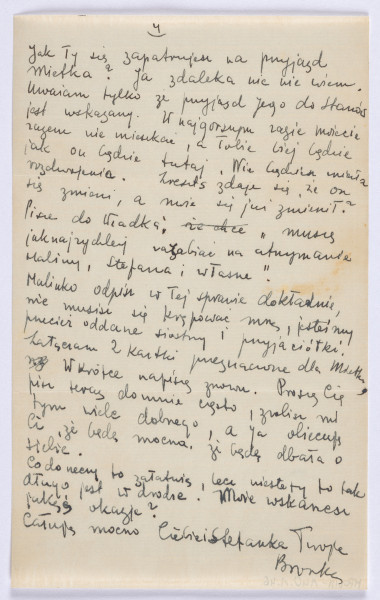 4
Jak Ty się zapatrujesz na przyjazd
Mietka? Ja zdaleka nic nie wiem.
Uważam tylko że przyjazd jego do Stanów
jest wskazany. W najgorszym razie możecie
razem nie mieszkać, a Tobie lżej będzie
jak on będzie tutaj. Nie będziesz miała
rozdwojenia. Zresztą zdaje się, że on
się zmieni, a może się już zmienił?
Pisze do Władka, że chce "muszę
jaknajrychlej zarabiać na utrzymanie
Haliny, Stefana i własne".
Halinko odpisz w tej sprawie dokładnie,
nie musisz się krępować mną, jesteśmy
przecież oddane siostry i przyjaciółki.
Załączam 2 kartki przeznaczone dla Mietka,
Wkrótce napiszę znowu. Proszę Cię
pisz teraz do mnie często, zrobisz mi
tym wiele dobrego, a ja obiecuję
Ci, że będę mocna. Że będę dbała o
siebie.
Co do necny to załatwię, lecz niestety to tak
długo jest w drodze. Może wskażesz
jakąś okazję?
Całuję mocno Ciebie i Stefanka Twoja
Bronka